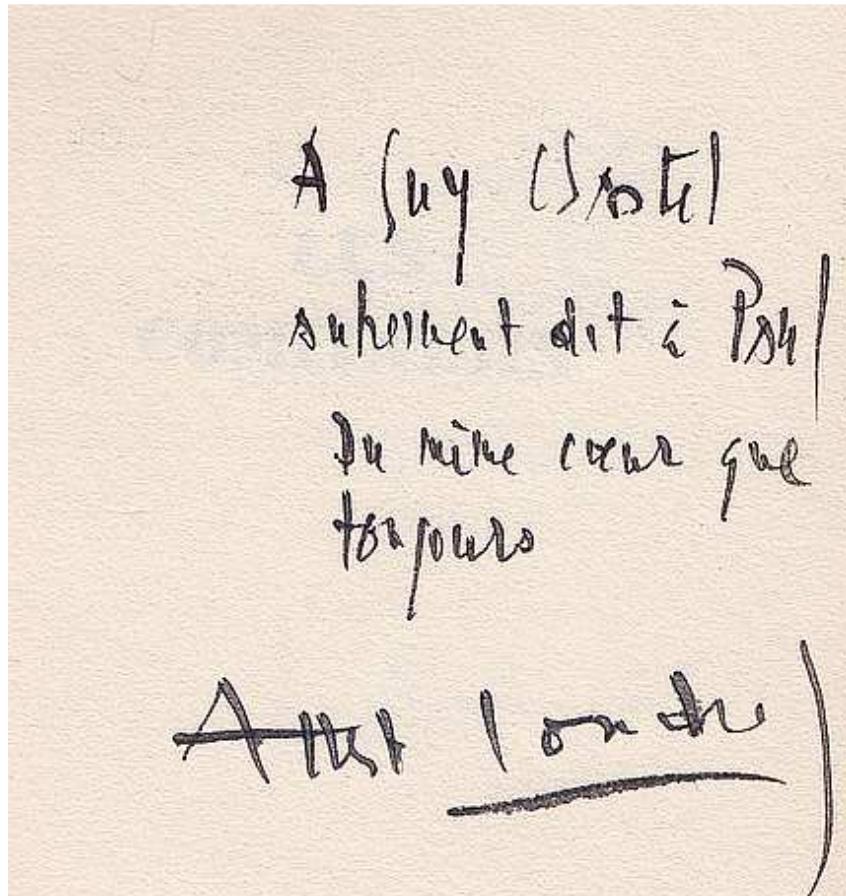 A Guy
autrement dit à Paul
Du même cœur que
toujours
Albert Londres